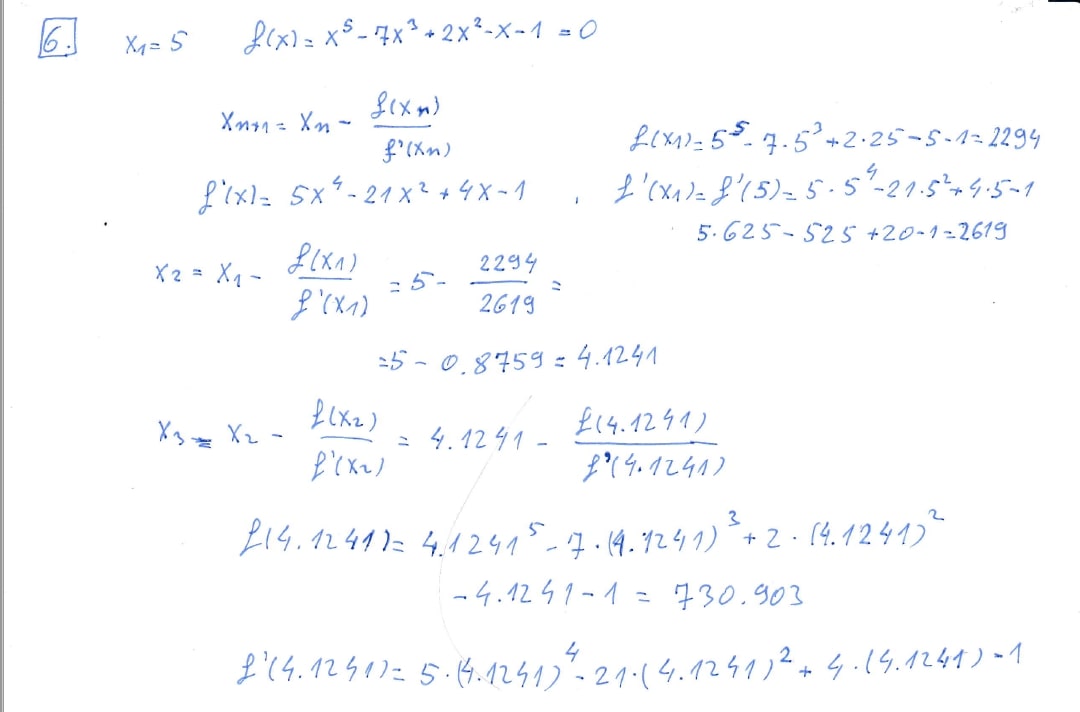 6. x₁ = 5 f(x) = x⁵ - 7x³ + 2x² - x - 1 = 0
xₙ₊₁ = xₙ - f(xₙ)/f'(xₙ)
f(x₁) = 5⁵ - 7·5³ + 2·25 - 5 - 1 = 2294
f'(x) = 5x⁴ - 21x² + 4x - 1 , f'(x₁) = f'(5) = 5·5⁴ - 21·5² + 4·5 - 1
5·625 - 525 + 20 - 1 = 2619
x₂ = x₁ - f(x₁)/f'(x₁) = 5 - 2294/2619 =
= 5 - 0.8759 = 4.1241
x₃ = x₂ - f(x₂)/f'(x₂) = 4.1241 - f(4.1241)/f'(4.1241)
f(4.1241) = 4.1241⁵ - 7·(4.1241)³ + 2·(4.1241)²
- 4.1241 - 1 = 730.903
f'(4.1241) = 5·(4.1241)⁴ - 21·(4.1241)² + 4·(4.1241) - 1